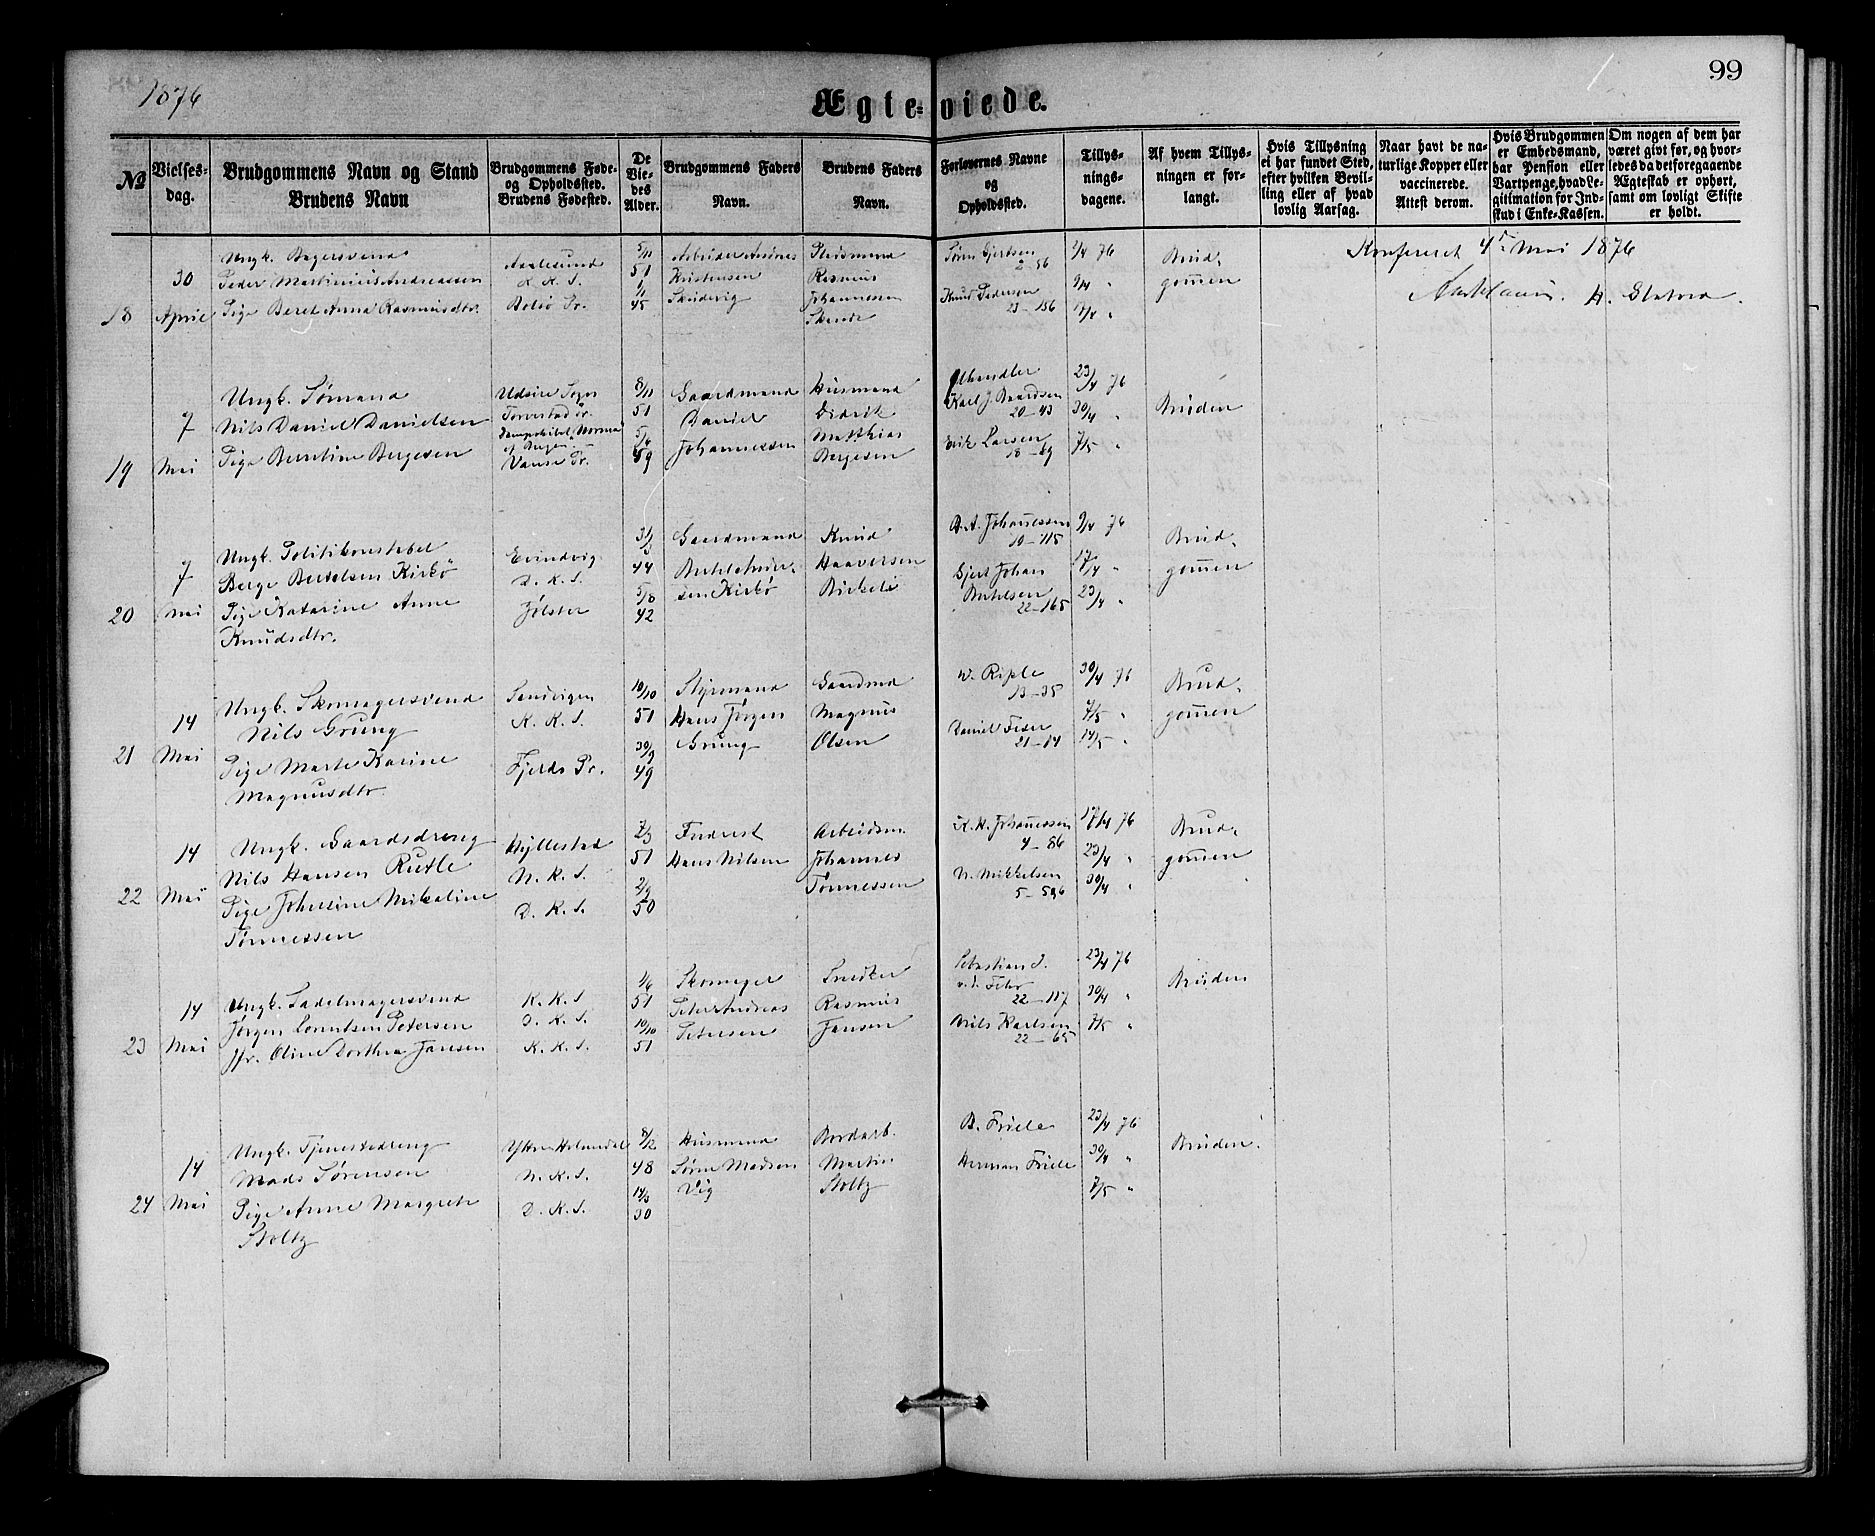 1876
99
Ægteviede.
№
Vielsesdag.
Brudgommens Navn og Stand
Brudens Navn
Brudgommens Føde- og Opholdssted.
Brudens Fødested.
De Viedes Alder.
Brudgommens Faders Navn.
Brudens Faders Navn.
Forlovernes Navne og Opholdssted.
Tillysningsdagene.
Af hvem Tillysningen er forlangt.
Hvis Tillysning ei har fundet Sted, efter hvilken Bevilling eller af hvad lovlig Aarsag.
Naar havt de naturlige Kopper eller vaccinerede. Attest derom.
Hvis Brudgommen er Embedsmand, har Pension eller Vartpenge, hvad Legitimation for Indskud i Enke-Kassen.
Om nogen af dem har været givt før, og hvorledes da det foregaaende Ægteskab er ophørt, samt om lovligt Skifte er holdt.
18
30 April
Ungk. Bagersvend
Peder Martinius Andreassen
Pige Beret Anna Rasmusdtr.
Aalesund
K. K. S.
Bolsø Pr.
5/11 51
1/1 45
Arbeider
Kristensen
Rasmus
Johannessen
Søren Gjertsen
2–56
Knud Pedersen
23–156
2/4 76
9/4 "
17/4 "
Brudgommen
Konfereret 4de Mai 1876
19
7 Mai
Ungk. Sømand
Nils Daniel Danielsen
Pige Berntine Bergesen
Udsire Sogn
Torvestad Pr.
Dampskibet "Norma"
af Bergen
Vanse Pr.
8/11 51
5/6 49
Gaardmand
Daniel
Johannessen
Husmand
Didrik
Matthias
Bergesen
Ølhandler
Karl J. Baardsen
20–43
Erik Larsen
18–69
23/4 76
30/4 "
7/5 "
Bruden
20
7 Mai
Ungk. Politikonstabel
Berge Bertelsen Kirkø
Pige Katarine Anne
Knudsdtr.
Evindvig
D. K. S.
Jølster
31/3 44
5/8 42
Gaardmand
Kirkø
Knud
Haaversen
Birkeli
B. A. Johanessen
10–115
Gjert Johan
Bertelsen
22–165
9/4 76
17/4 "
23/4 "
Brudgommen
21
14 Mai
Ungk. Skomagersvend
Nils Grung
Pige Marte Karine
Magnusdtr.
Sandvigen
K. K. S.
Fjerds Pr.
10/10 51
30/9 49
Styrmand
Hans Jørgen
Grung
Gaardmd
Magnus
Olsen
W. Riple
13–35
Daniel Feser
21–14
30/4 76
7/5 "
14/5 "
Brudgommen
22
14 Mai
Ungk. Gaardsdreng
Nils Hansen Rutle
Pige Johanne Mikaline
Tønnessen
Hyllestad
N. K. S.
D. K. S.
7/3 51
2/9 50
Inderst
Hans Nilsen
Arbeidsm.
Johannes
Tønnessen
K. H. Johanessen
4–86
N. Mikkelsen
5–596
17/4 76
23/4 "
30/4 "
Brudgommen
23
14 Mai
Ungk. Sadelmagersvend
Jørgen Lorentsen Petersen
Jfr. Oline Dorthea Jansen
K. K. S
D. K. S.
K. K. S.
1/6 51
10/10 51
Skomager
Peter Andreas
Petersen
Snedker
Rasmus
Jansen
Sebastian J.
v. d. Fehr
22–117
Nils Karlsen
22–65
23/4 76
30/4 "
7/5 "
Bruden
24
14 Mai
Ungk. Tjenestedreng
Mads Sørensen
Pige Anne Margrete
Stoltz
Yttre Holmedal
N. K. S.
D. K. S.
8/2 48
14/3 30
Husmand
Søren Madsen
Vig
Bordarb.
Martin
Stoltz
B. Friele
Herman Friele
23/4 76
30/4 "
7/5 "
Bruden.